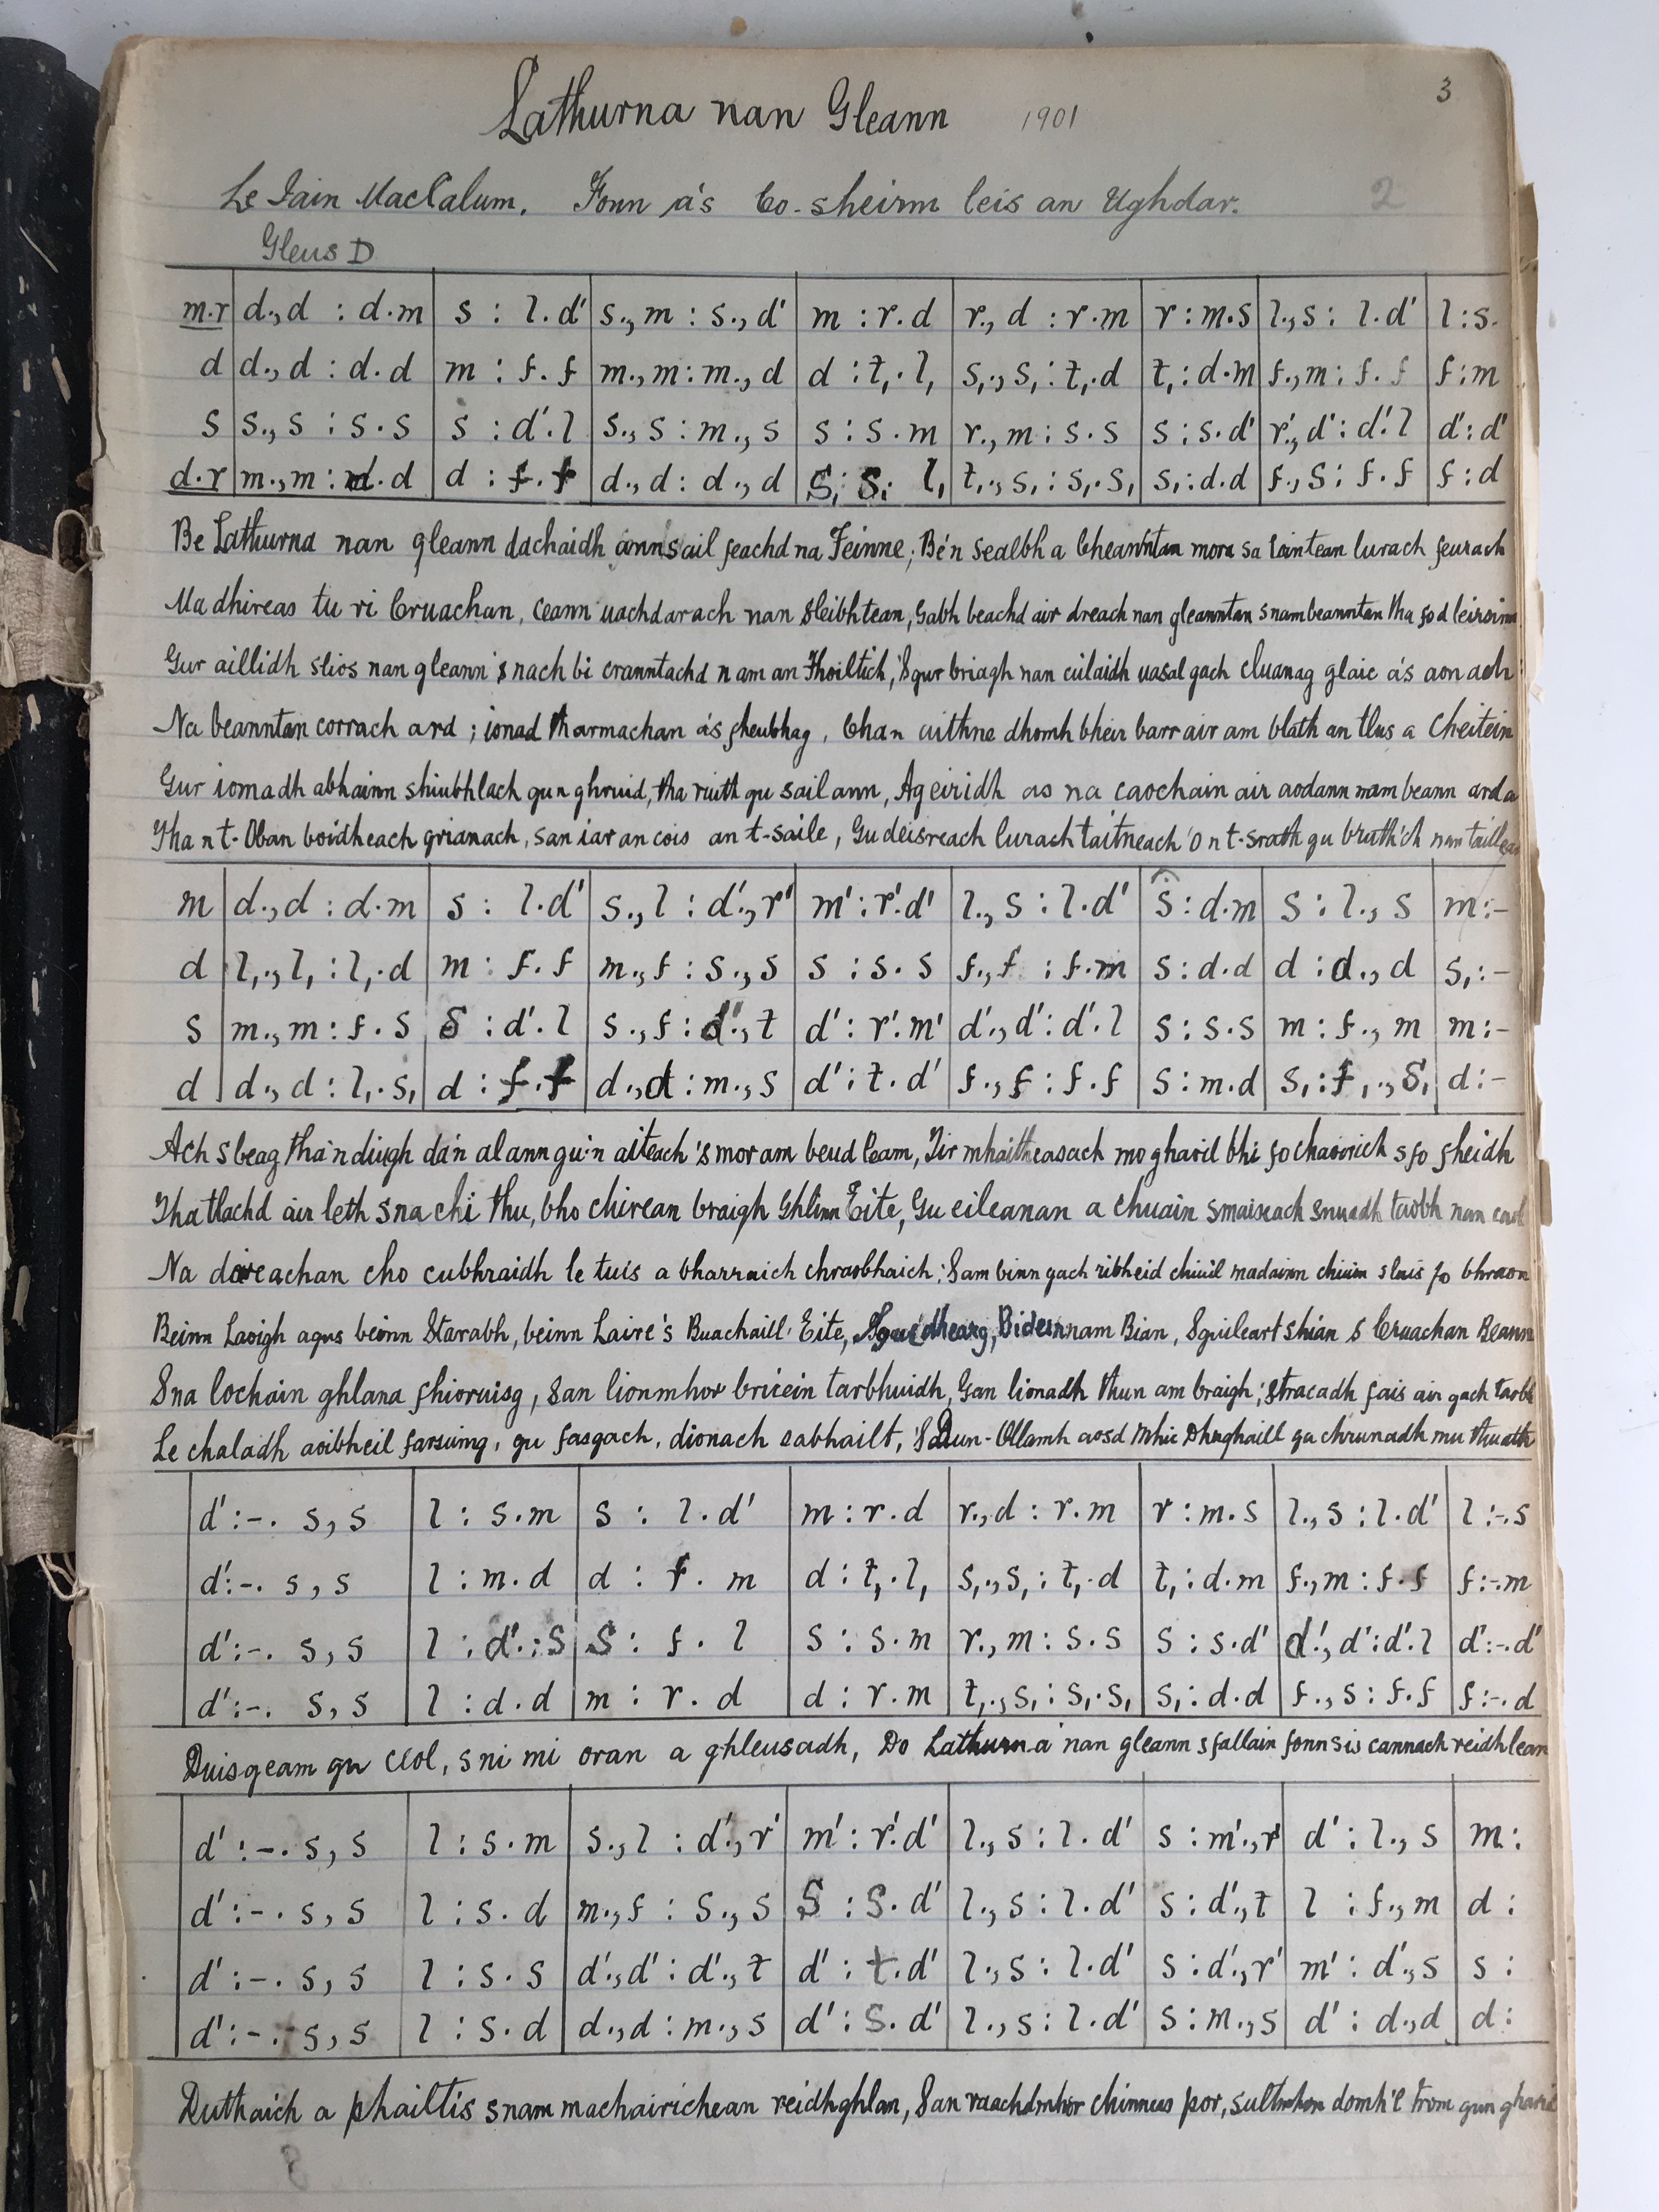 3
Lathurna nan Gleann 1901
Le Iain MacCalum. Fonn a's Co-sheirm leis an Ughdar. 2
Gleus D
m.r | d.,d : d.m | s : l.d' | s.,m : s.,d' | m : r.d | r.,d : r.m | r : m.s | l.,s : l.d' | l : s.
d | d.,d : d.d | m : f.f | m.,m : m.,d | d : t,.l, | s,.,s, : t,.d | t, : d.m | f.,m : f.f | f : m
s | s.,s : s.s | s : d'.l | s.,s : m.,s | s : s.m | r.,m : s.s | s : s.d' | r'.,d' : d'.l | d' : d'
d.r | m.,m : d.d | d : f.f | d.,d : d.,d | s, : s, l, | t,.,s, : s,.s, | s, : d.d | f.,s : f.f | f : d
Be Lathurna nan gleann dachaidh annsail feachd na Feinne; Be'n sealbh a bheanntan mora sa lointean lurach feurach
Ma dhireas tu ri Cruachan, ceann uachdarach nan sleibhtean, Gabh beachd air dreach nan gleanntan s nam beanntan tha fod
Gur aillidh slios nan gleann 's nach bi cranntachd n am an Fhoiltich, 'S gur briagh nan culaidh uasal gach cluanag glaic a's aonach
Na beanntan corrach ard; ionad tharmachan a's sheubhag, Chan cuithne dhomh bheir barr air am blath an tlus a Cheitein
Gur iomadh abhainn shiubhlach gun ghruid, tha ruith gu sail ann, Ag eiridh as na caochain air aodann nam beann arda
Tha n t-Oban boidheach grianach, san iar an cois an t-saile, Gu deisreach lurach taitneach 'o n t-srath gu bruth'ch nan
m | d.,d : d.m | s : l.d' | s.,l : d'.,r' | m' : r'.d' | l.,s : l.d' | s : d.m | s : l.,s | m :-
d | l,.,l, : l,.d | m : f.f | m.,f : s.,s | s : s.s | f.,f : f.m | s : d.d | d : d.,d | s, :-
s | m.,m : f.s | s : d'.l | s.,f : d'.,t | d' : r'.m' | d'.,d' : d'.l | s : s.s | m : f.,m | m :-
d | d.,d : l,.s, | d : f.f | d.,d : m.,s | d' : t.d' | f.,f : f.f | s : m.d | s, : f,.,s, | d :-
Ach s beag tha'n diugh da'n al ann gu'n aiteach 's mor am beud leam, Tir mhaitheasach mo ghaoil bhi fo chaoirich s fo fheidh
Tha tlachd air leth s na chi thu, bho chirean braigh Ghlinn Eite, Gu eileanan a chuain smaiseach snuadh taobh nan caol
Na doireachan cho cubhraidh le tuis a bharraich chraobhaich; 'S am binn gach ribheid chiuil madainn chiuin s luis fo bhraon
Beinn Laoigh agus beinn Starabh, beinn Laire 's Buachaill Eite, Bidein nam Bian, Sguileart shian s Cruachan Beann
S na lochain ghlana fhioruisg, san lionmhor bricein tarbhuidh, Gan lionadh thun am braigh; stracadh fais air gach taobh
Le chaladh aoibheil farsuing, gu fasgach, dionach sabhailt, 'S Dun-Ollamh aosd Mhic Dhughaill ga chrunadh mu thuath
d' :-. s,s | l : s.m | s : l.d' | m : r.d | r.,d : r.m | r : m.s | l.,s : l.d' | l :-.s
d' :-. s,s | l : m.d | d : f.m | d : t,.l, | s,.,s, : t,.d | t, : d.m | f.,m : f.f | f :-.m
d' :-. s,s | l : d'. : s | s : f.l | s : s.m | r.,m : s.s | s : s.d' | d'.,d' : d'.l | d' :-.d'
d' :-. s,s | l : d.d | m : r.d | d : r.m | t,.,s, : s,.s, | s, : d.d | f.,s : f.f | f :-.d
Duisgeam gu ceol, s ni mi oran a ghleusadh, Do Lathurna nan gleann s fallain fonn sis cannach reidhlean
d' :-. s,s | l : s.m | s.,l : d'.,r' | m' : r'.d' | l.,s : l.d' | s : m'.,r' | d' : l.,s | m :
d' :-. s,s | l : s.d | m.,f : s.,s | s : s.d' | l.,s : l.d' | s : d'.,t | l : f.,m | d :
d' :-. s,s | l : s.s | d'.,d' : d'.,t | d' : t.d' | l.,s : l.d' | s : d'.,r' | m' : d'.,s | s :
d' :-. s,s | l : s.d | d.,d : m.,s | d' : s.d' | l.,s : l.d' | s : m.,s | d' : d.,d | d :
Duthaich a phailtis snam machairichean reidhghlan, San raachdmhor chinneas por, sultmhor domh'l trom gun
8